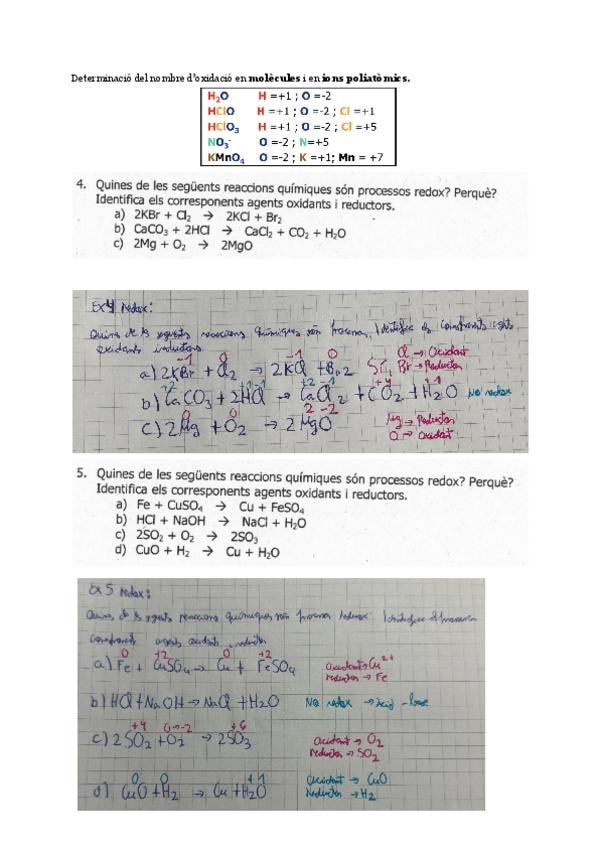 Determinació del nombre d'oxidació en molècules i en ions poliatòmics.
H₂O H =+1 ; O =-2
HClO H =+1 ; O =-2 ; Cl =+1
HClO₃ H =+1 ; O =-2 ; Cl =+5
NO₃⁻ O =-2 ; N=+5
KMnO₄ O =-2 ; K =+1; Mn = +7
4. Quines de les següents reaccions químiques són processos redox? Perquè?
Identifica els corresponents agents oxidants i reductors.
a) 2KBr + Cl₂ → 2KCl + Br₂
b) CaCO₃ + 2HCl → CaCl₂ + CO₂ + H₂O
c) 2Mg + O₂ → 2MgO
Ex 4 redox:
reaccions químiques són
oxidants
-1 0 -1 0
a) 2KBr + Cl₂ → 2KCl + Br₂ SÍ, Cl → Oxidant
Br → Reductor
b) CaCO₃ + 2HCl → CaCl₂ + CO₂ + H₂O No redox
0 0 2 -2
c) 2Mg + O₂ → 2MgO Mg → Reductor
O → Oxidant
5. Quines de les següents reaccions químiques són processos redox? Perquè?
Identifica els corresponents agents oxidants i reductors.
a) Fe + CuSO₄ → Cu + FeSO₄
b) HCl + NaOH → NaCl + H₂O
c) 2SO₂ + O₂ → 2SO₃
d) CuO + H₂ → Cu + H₂O
Ex 5 redox:
reaccions químiques són
agents oxidants
0 +2 0 +2
a) Fe + CuSO₄ → Cu + FeSO₄ oxidant Cu²⁺
reductor → Fe
b) HCl + NaOH → NaCl + H₂O No redox → àcid - base
+4 0→-2 +6
c) 2SO₂ + O₂ → 2SO₃ oxidant → O₂
reductor → SO₂
0 0 +1
d) CuO + H₂ → Cu + H₂O oxidant → CuO
Reductor → H₂